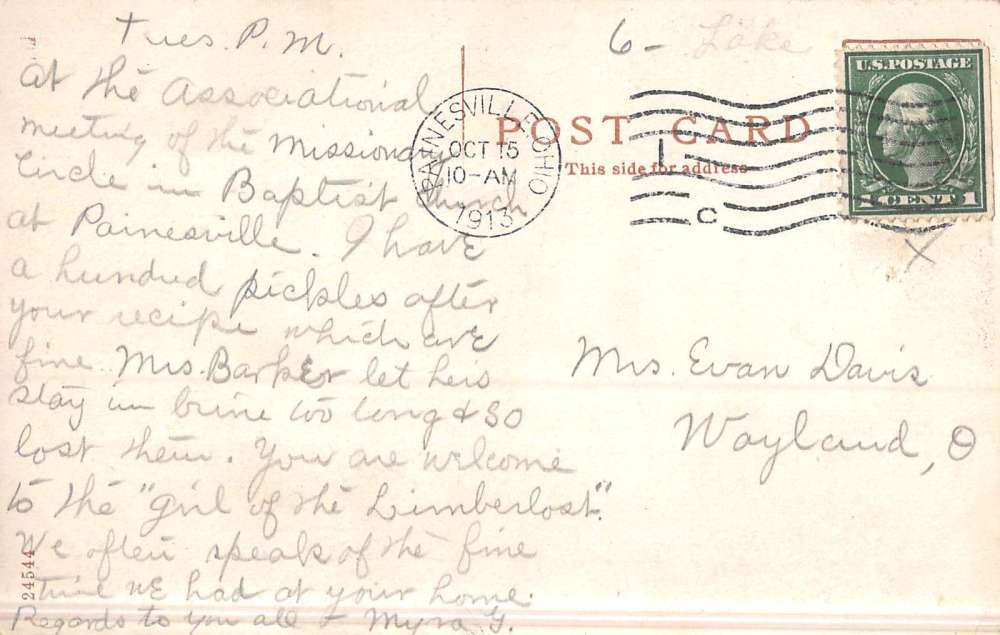 Tues. P.M.
At the Associational
meeting of the Missionary
Circle in Baptist Church
at Painesville. I have
a hundred pickles after
your recipe which are
fine. Mrs. Barker let hers
stay in brine too long & so
lost them. You are welcome
to the "girl of the Limberlost".
We often speak of the fine
time we had at your home.
Regards to you all - Myra G.
24544
6 - Lake
PAINESVILLE, OHIO
OCT 15
10-AM
1913
POST CARD
This side for address
1
C
U.S. POSTAGE
1 CENT 1
X
Mrs. Evan Davis
Wayland, O